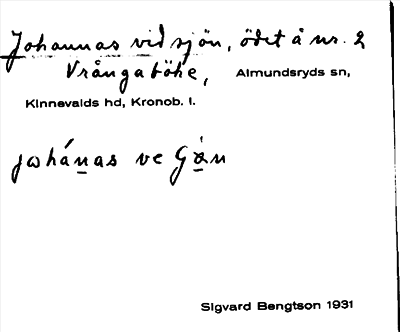 Johannas vid sjön, ödet å nr. 2
Vrångaböke, Almundsryds sn,
Kinnevalds hd, Kronob. l.
johánas ve
Sigvard Bengtson 1931